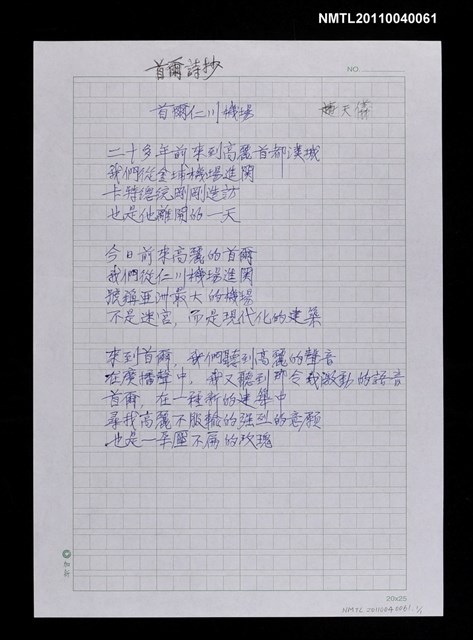 NMTL20110040061
首爾詩抄
NO.
首爾仁川機場
趙天儀
二十多年前來到高麗首都漢城
我們從金埔機場進關
卡特總統剛剛造訪
也是他離開的一天
今日前來高麗的首爾
我們從仁川機場進關
號稱亞洲最大的機場
不是迷宮，而是現代化的建築
來到首爾，我們聽到高麗的聲音
在廣播聲中，我又聽到那令我激動的語音
首爾，在一種新的建築中
尋找高麗不服輸的強烈的意願
也是一朵壓不扁的玫瑰
20x25
NMTL 20110040061